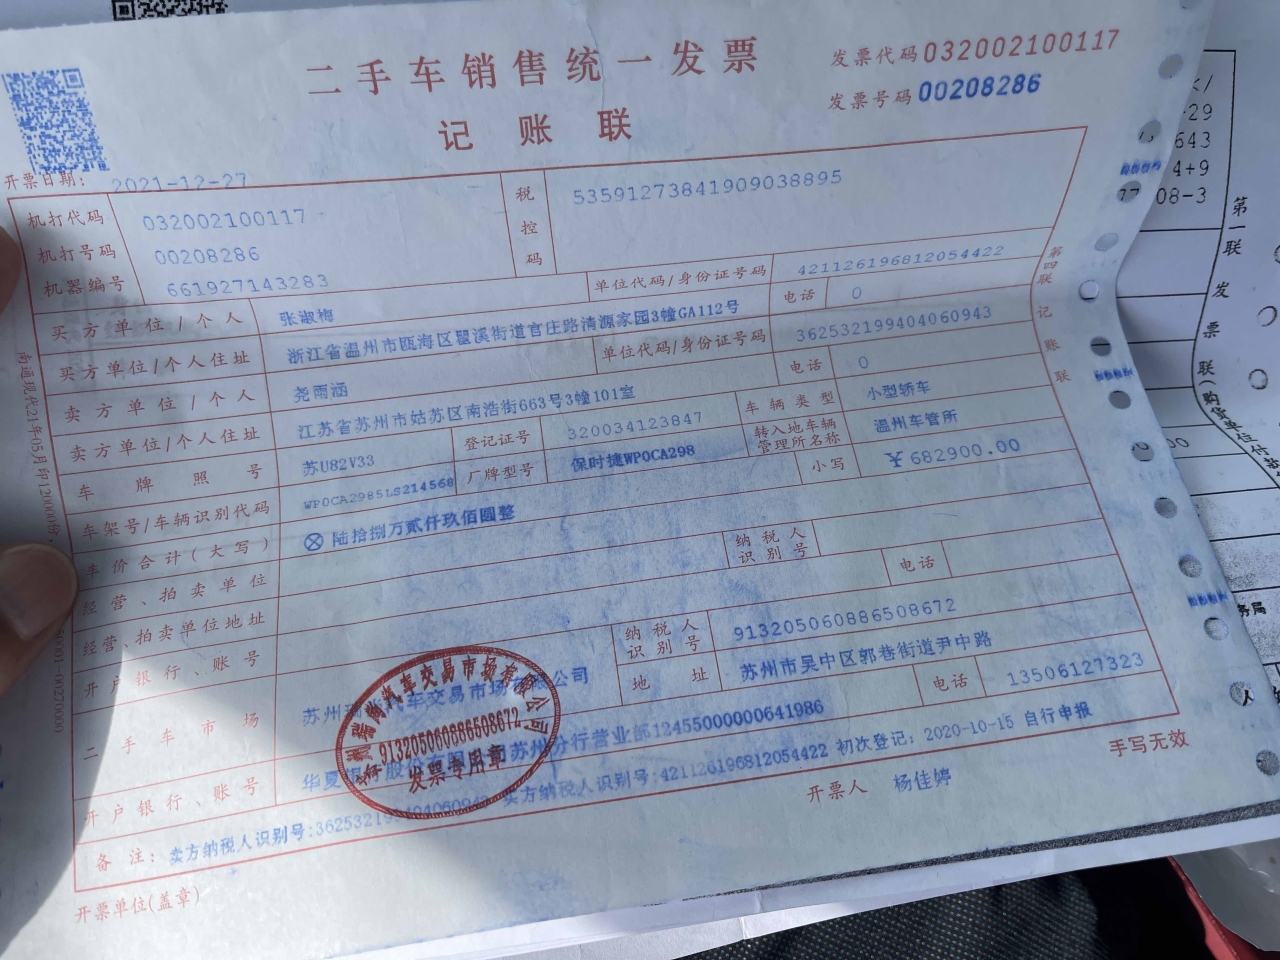 二手车销售统一发票
发票代码032002100117
记账联
发票号码00208286
开票日期: 2021-12-27
机打代码 032002100117
机打号码 00208286
机器编号 661927143283
税控码 53591273841909038895
买方单位/个人 张淑梅 单位代码/身份证号码 421126196812054422
买方单位/个人住址 浙江省温州市瓯海区瞿溪街道官庄路清源家园3幢GA112号 电话 0
卖方单位/个人 尧雨涵 单位代码/身份证号码 362532199404060943
卖方单位/个人住址 江苏省苏州市姑苏区南浩街663号3幢101室 电话 0
车牌照号 苏U82V33 登记证号 320034123847 车辆类型 小型轿车
车架号/车辆识别代码 WP0CA2985LS214568 厂牌型号 保时捷WP0CA298 转入地车辆管理所名称 温州车管所
车价合计(大写) ⊗陆拾捌万贰仟玖佰圆整 小写 ¥682900.00
经营、拍卖单位
经营、拍卖单位地址 纳税人识别号
开户银行、账号 电话
二手车市场 苏州 汽车交易市场 公司 纳税人识别号 913205060886508672
地址 苏州市吴中区郭巷街道尹中路
开户银行、账号 华夏 股份 苏州分行营业部12455000000641986 电话 13506127323
备注: 卖方纳税人识别号:362532199404060943 买方纳税人识别号:421126196812054422 初次登记: 2020-10-15 自行申报
开票单位(盖章) 开票人 杨佳婷 手写无效
汽车交易市场有限公司
913205060886508672
发票专用章
第四联 记账联
第一联 发票联(购货单位付款
-29
643
4+9
08-3
务局